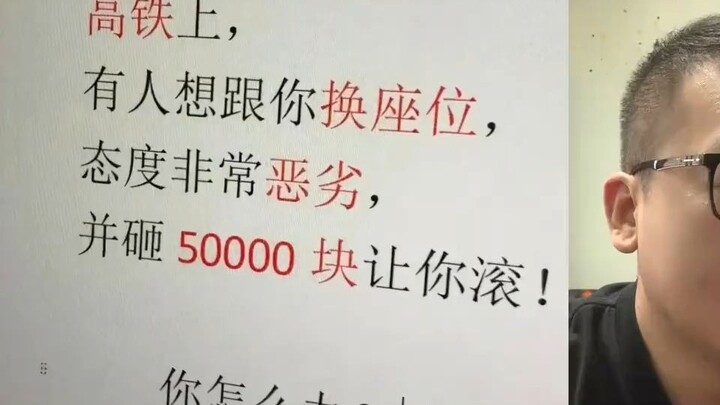 高铁上，
有人想跟你换座位，
态度非常恶劣，
并砸 50000 块让你滚！
你怎么